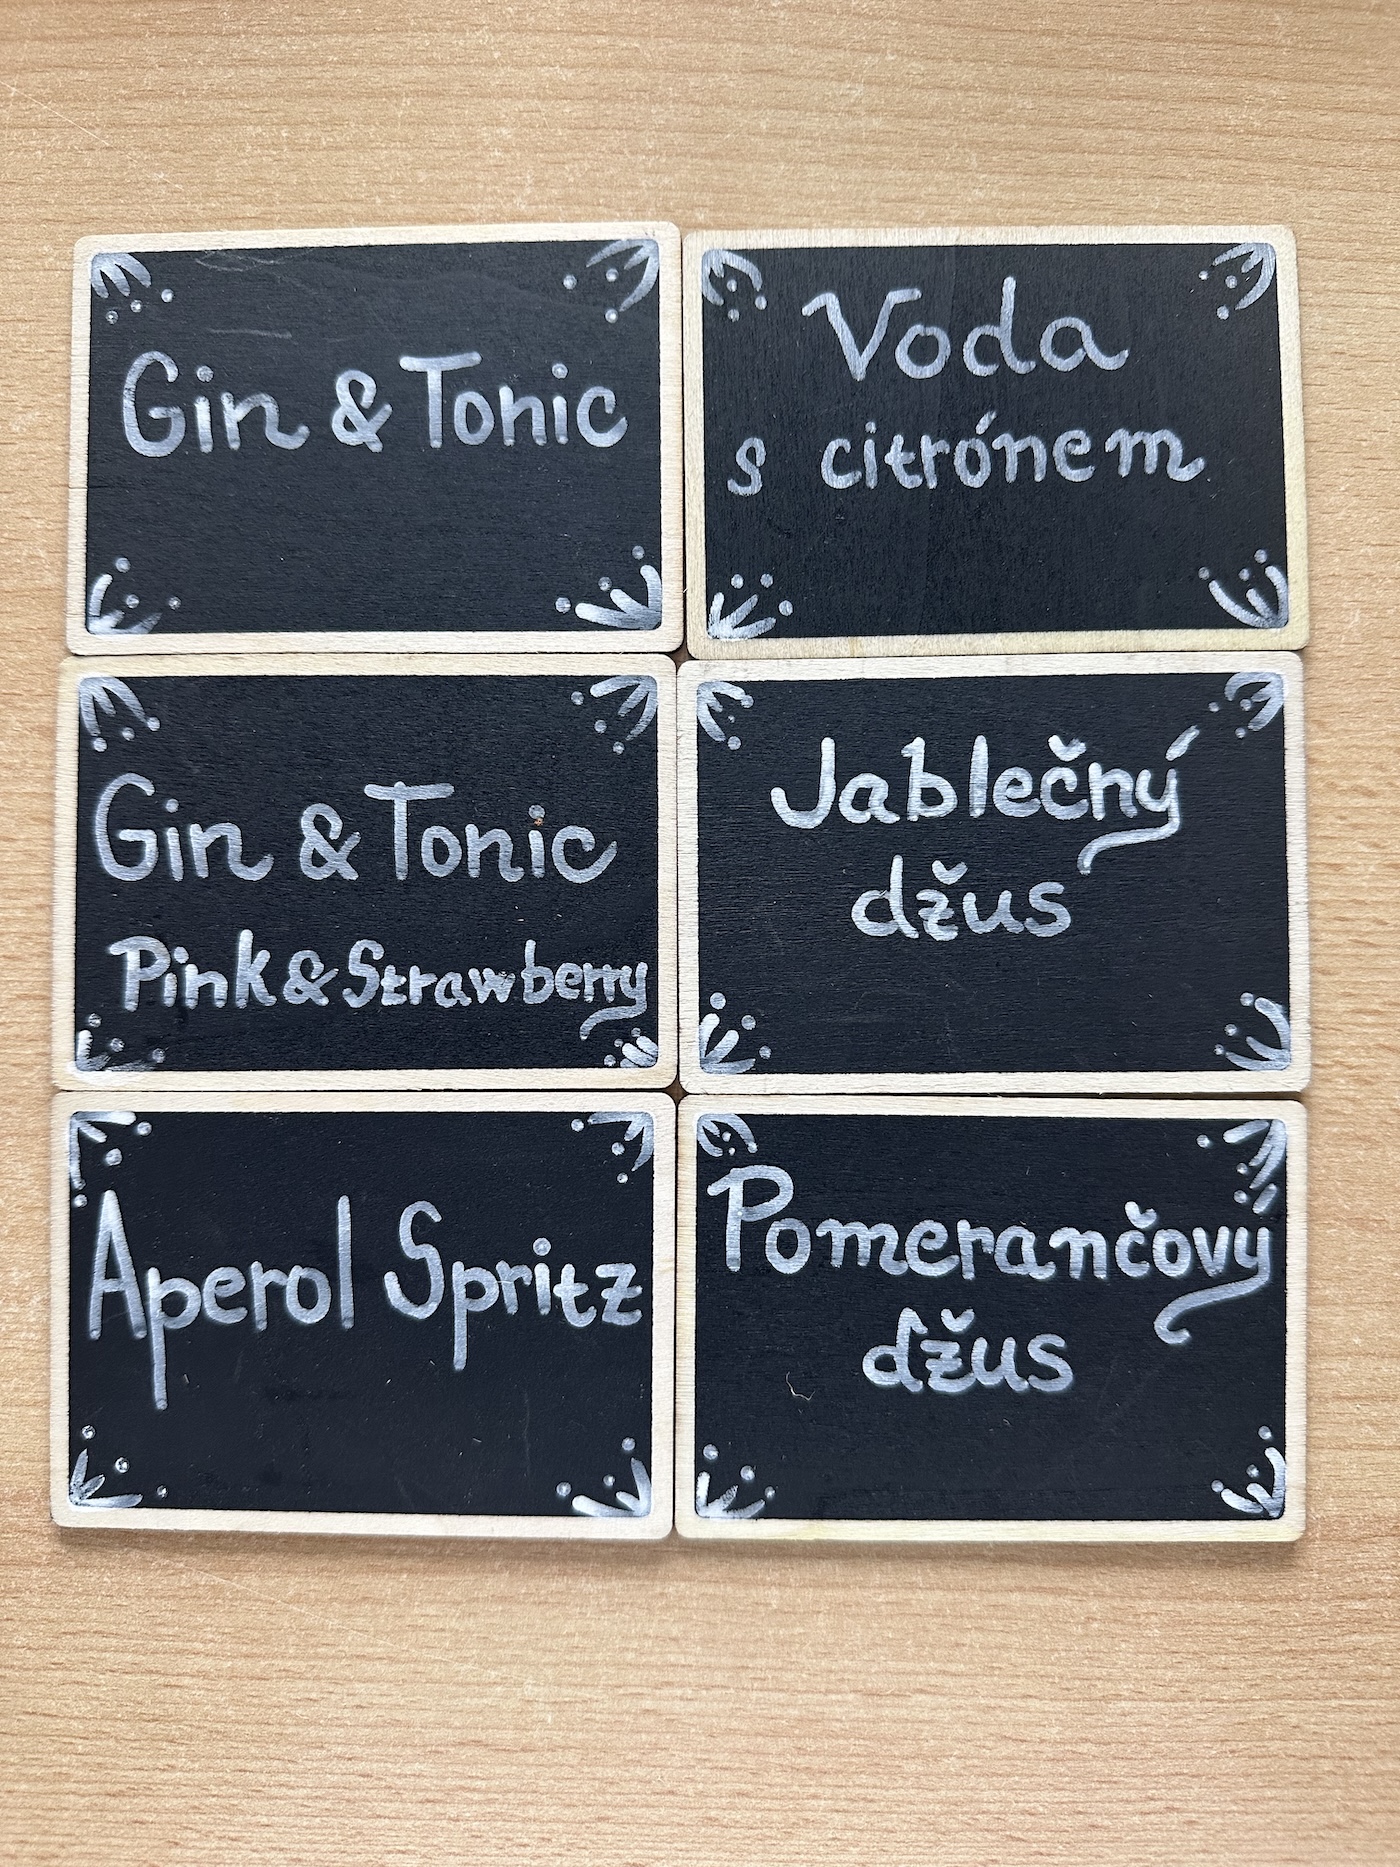 Gin & Tonic
Voda
s citrónem
Gin & Tonic
Pink & Strawberry
Jablečný
džus
Aperol Spritz
Pomerančový
džus